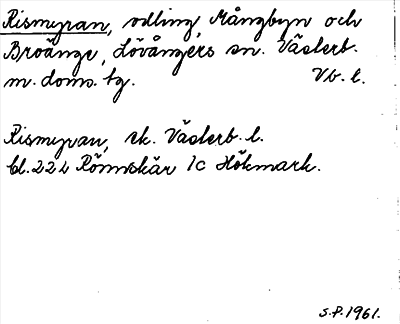 Rismyran, odling, Mångbyn och
Broänge, Lövångers sn. Västerb.
m. doms. tg. Vb. l.
Rismyran, sk. Västerb. l.
bl. 22 L Rönnskär 1c Hökmark.
S.P. 1961.